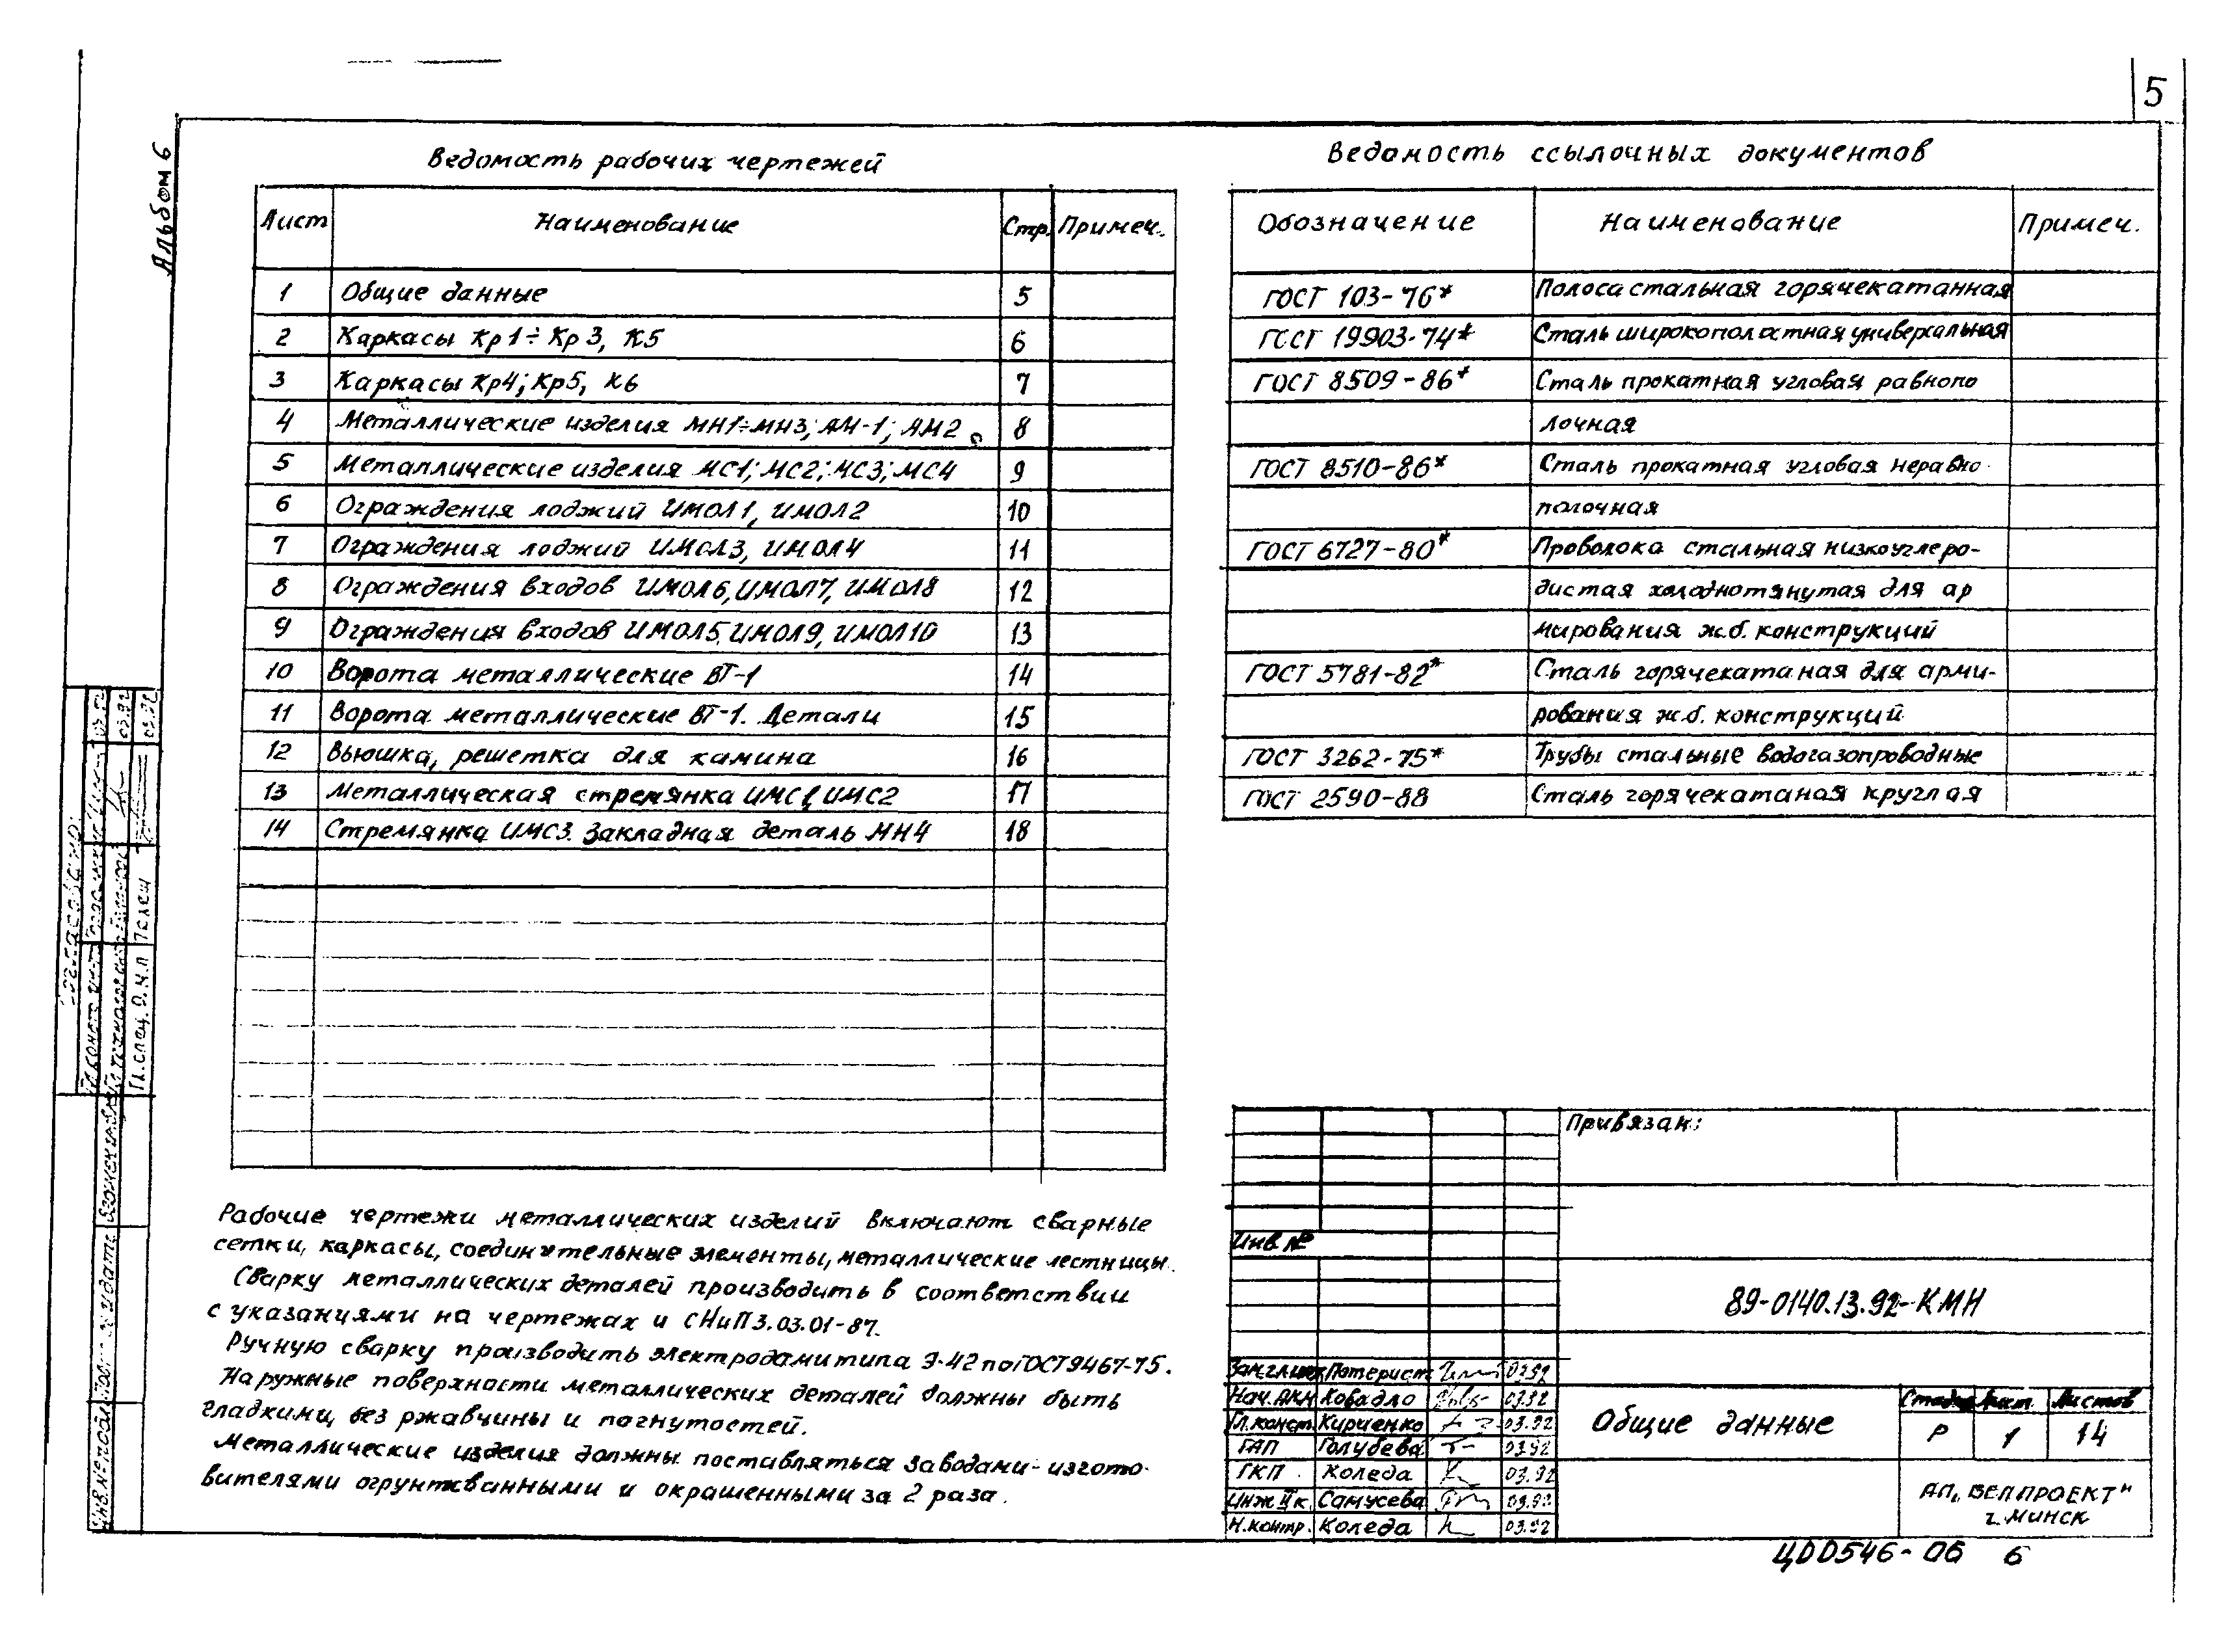 5
Альбом 6
Ведомость рабочих чертежей
Лист Наименование Стр. Примеч.
1 Общие данные 5
2 Каркасы Кр1÷Кр3, К5 6
3 Каркасы Кр4; Кр5, К6 7
4 Металлические изделия МН1÷МН3; АН-1; АН2 8
5 Металлические изделия МС1; МС2; МС3; МС4 9
6 Ограждения лоджий ИМОЛ1, ИМОЛ2 10
7 Ограждения лоджий ИМОЛ3, ИМОЛ4 11
8 Ограждения входов ИМОЛ6, ИМОЛ7, ИМОЛ8 12
9 Ограждения входов ИМОЛ5, ИМОЛ9, ИМОЛ10 13
10 Ворота металлические ВТ-1 14
11 Ворота металлические ВТ-1. Детали 15
12 Вьюшка, решетка для камина 16
13 Металлическая стремянка ИМС1, ИМС2 17
14 Стремянка ИМС3. Закладная деталь МН4 18
Ведомость ссылочных документов
Обозначение Наименование Примеч.
ГОСТ 103-76* Полоса стальная горячекатанная
ГОСТ 19903-74* Сталь широкополостная универсальная
ГОСТ 8509-86* Сталь прокатная угловая равнопо
лочная
ГОСТ 8510-86* Сталь прокатная угловая неравно-
полочная
ГОСТ 6727-80* Проволока стальная низкоуглеро-
дистая холоднотянутая для ар
мирования ж.б. конструкций
ГОСТ 5781-82* Сталь горячекатаная для арми-
рования ж.б. конструкций
ГОСТ 3262-75* Трубы стальные водогазопроводные
ГОСТ 2590-88 Сталь горячекатаная круглая
Рабочие чертежи металлических изделий включают сварные
сетки, каркасы, соединительные элементы, металлические лестницы.
Сварку металлических деталей производить в соответствии
с указаниями на чертежах и СНиП 3.03.01-87.
Ручную сварку производить электродами типа Э-42 по ГОСТ 9467-75.
Наружные поверхности металлических деталей должны быть
гладкими, без ржавчины и погнутостей.
Металлические изделия должны поставляться заводами-изгото-
вителями огрунтованными и окрашенными за 2 раза.
Привязан:
Инв №
89-0140.13.92-КМН
Зам.гл.инж Потерист 03.92
Нач. АКМ Ковадло 03.92
Гл.конст. Кириенко 03.92
ГАП Голубева 03.92
ГКП Коледа 03.92
Инж II к. Самусева 03.92
Н.контр. Коледа 03.92
Общие данные
Стадия Лист Листов
Р 1 14
АП „БЕЛПРОЕКТ"
г. МИНСК
Согласовано:
Гл. спец. О.М.П Телеш 03.92
Инв. № подл. Подп. и дата Взам.инв.№
ЦОО546-06 6